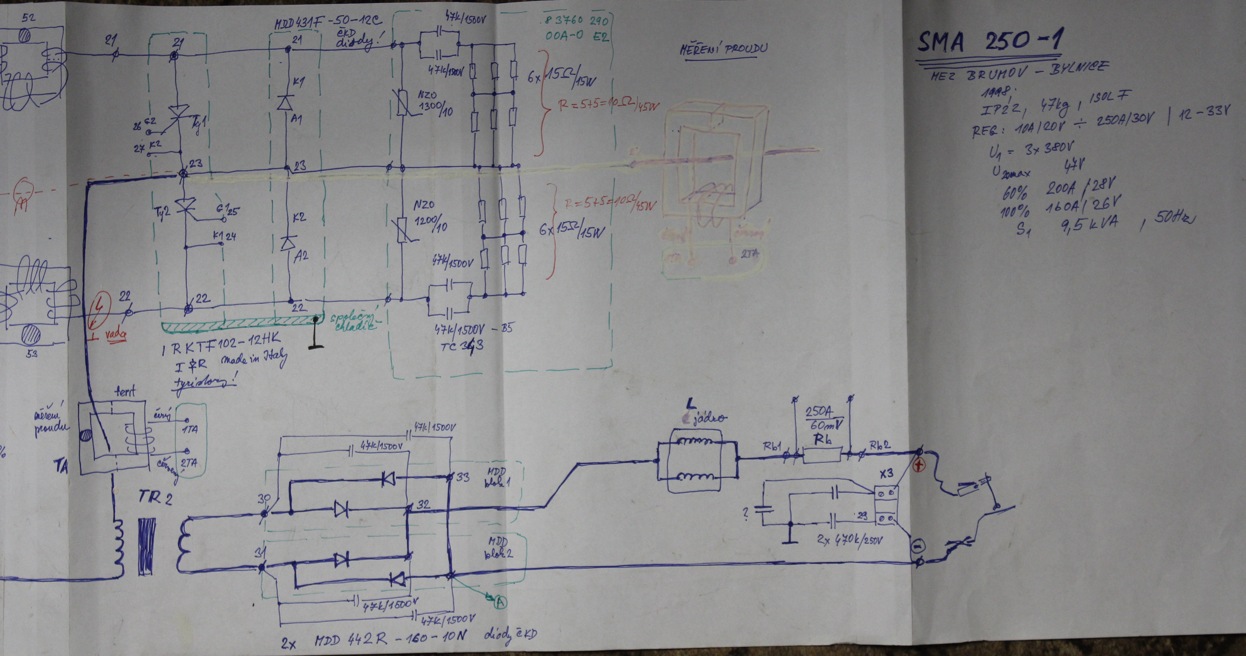 52
21
21
MDD431F-50-12C
ČKD
diody!
21
47k/1500V
47k/1500V
83760 290
00A-0 E2
MĚŘENÍ PROUDU
SMA 250-1
MEZ BRUMOV - BYLNICE
1998
IP22, 47kg, 130LF
REG: 10A/20V ÷ 250A/30V | 12-33V
U1 = 3x380V
U20max 47V
60% 200A/28V
100% 160A/26V
S1 9,5kVA, 50Hz
K1
A1
NZO
1300/10
6x 15Ω/15W
R=5+5=10Ω/45W
26 G2
27 K2
Ty1
23
23
Ty2
G1 25
K1 24
K2
A2
NZO
1200/10
6x 15Ω/15W
R=5+5=10Ω/45W
2TA
22
22
22
47k/1500V
47k/1500V - B5
TC 343
53
L
řada
společný
chladič
IRKTF102-12HK
I&R made in Italy
tyristory!
měření
proudu
TA
černý
1TA
2TA
červený
TR2
47k/1500V
47k/1500V
30
33
MDD
blok1
32
31
MDD
blok2
A
47k/1500V
47k/1500V
2x MDD 442R-160-10N diody ČKD
L
jádro
250A
60mV
Rb1
Rb
Rb2
+
X3
?
29
2x 470k/250V
-